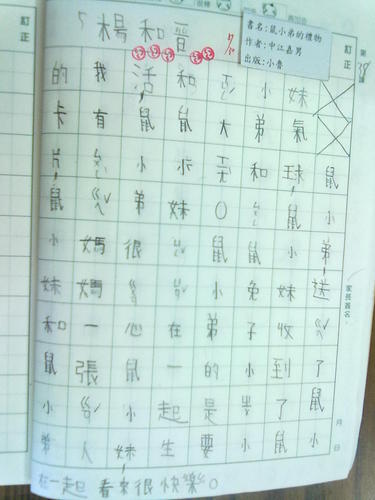 書名:鼠小弟的禮物
作者:中江嘉男
出版:小魯
楊和晉
訂正
第
課
家長簽名
月
日
訂正
鼠小弟,送ㄍㄟˇ了鼠小
妹氣球,鼠小妹收到了鼠
小弟和鼠兔子小小
大。鼠小弟的是要
和鼠小妹在一起生
活,鼠小弟很心鼠妹,
我有媽媽一張人
的卡片,鼠小妹和鼠小弟
在一起看來很快樂。